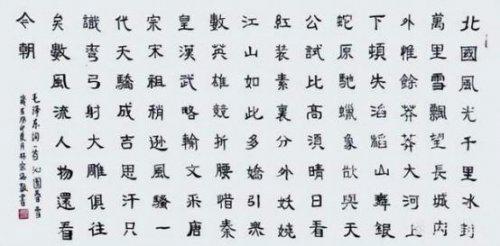 北國風光千里冰封
萬里雪飄望長城內
外惟餘莽莽大河上
下頓失滔滔山舞銀
蛇原馳蠟象欲與天
公試比高須晴日看
紅装素裹分外妖嬈
江山如此多嬌引無
數英雄競折腰惜秦
皇漢武略輸文采唐
宗宋祖稍遜風騷一
代天驕成吉思汗只
識彎弓射大雕俱往
矣數風流人物還看
今朝
毛澤東詞一首沁園春雪